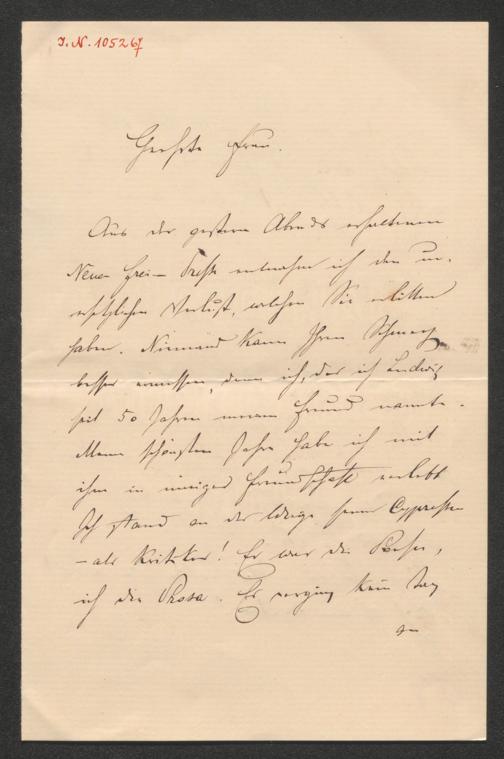 I. N. 105267
Geehrte Frau.
Aus der gestern Abends erhaltenen
Neuen Freien Presse entnahm ich den un-
ersetzlichen Verlust, welchen Sie erlitten
haben. Niemand kann Ihren Schmerz
besser ermessen, denn ich, der ich Ludwig
seit 50 Jahren meinen Freund nannte.
Meine schönsten Jahre habe ich mit
ihm in inniger Freundschaft verlebt
Ich stand an der Wiege seiner Cypressen
– als Kritiker! Er war die Poesie,
ich die Prosa. Es verging kein Tag